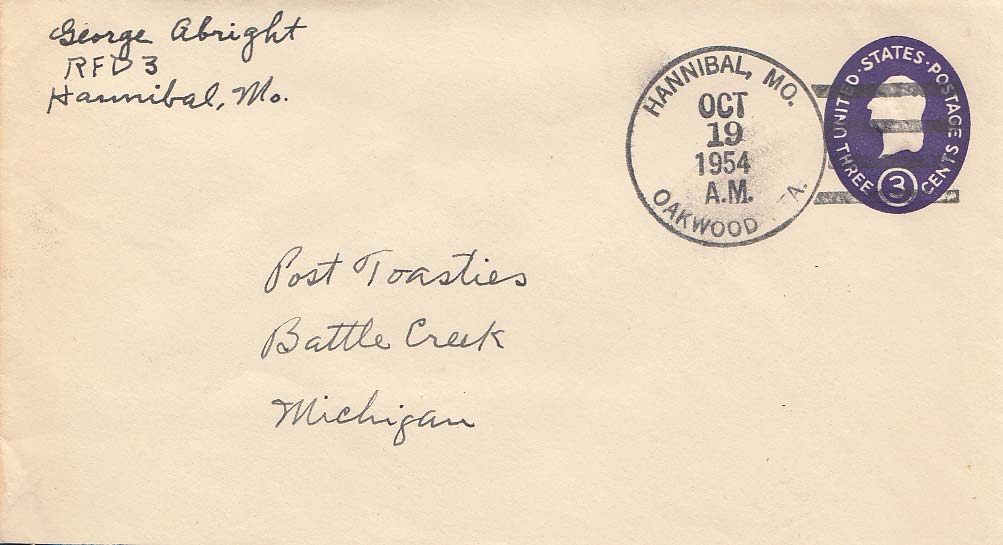 George Abright
RFD 3
Hannibal, Mo.
HANNIBAL, MO.
OCT
19
1954
A.M.
OAKWOOD TA.
UNITED·STATES·POSTAGE
THREE 3 CENTS
Post Toasties
Battle Creek
Michigan